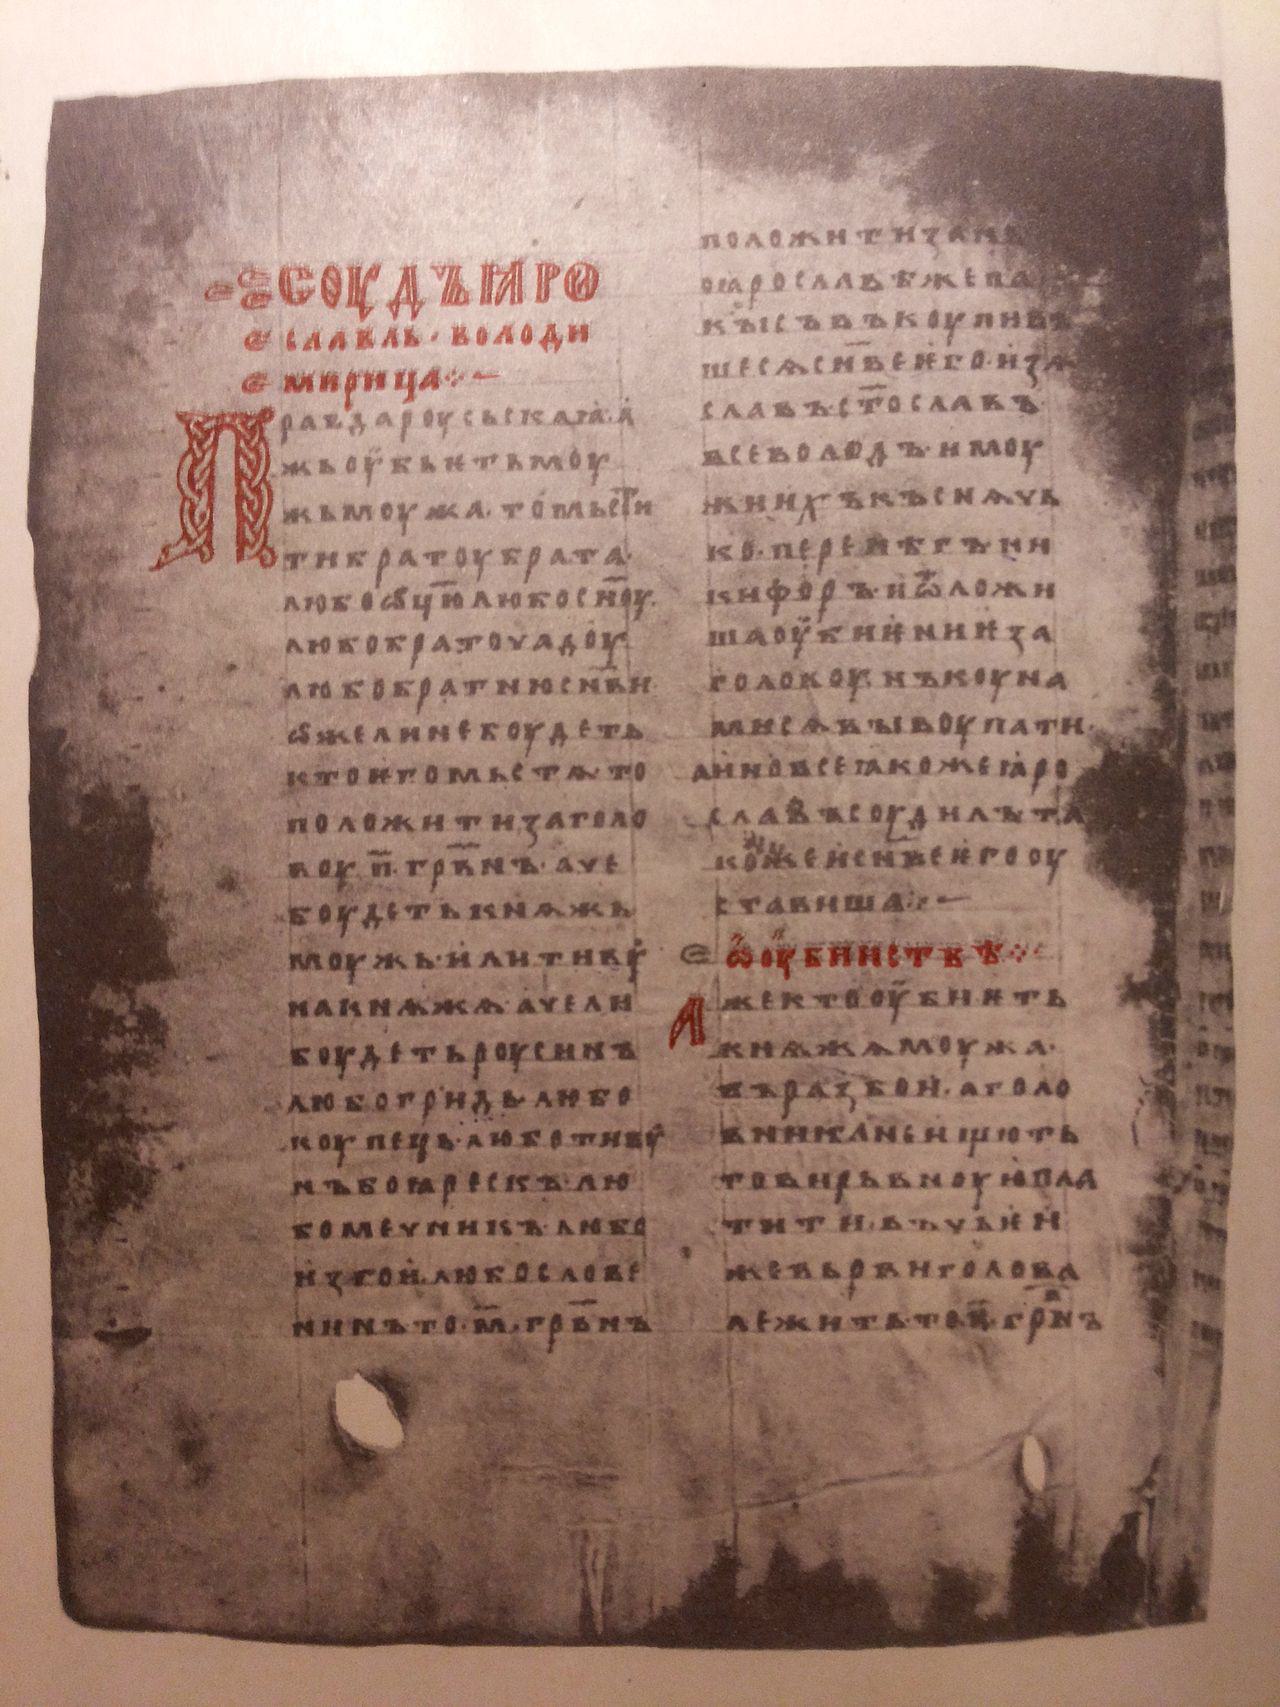 СОУДЪ ꙖРО
СЛАВЛЬ · ВОЛОДИ
МИРИЦА ⁘ —
ПРАВДАРОУСЬСКАꙖ · А
ЖЬОУБЬѤТЬМОУ
ЖЬМОУЖА · ТОМЬСТИ
ТИБРАТОУБРАТА ·
ЛЮБОѾЦЮ҃ЛЮБОСН҃ОУ ·
ЛЮБОБРАТОУЧАДОУ
ЛЮБОБРАТНЮСН҃ВИ
ѠЖЕЛИНЕБОУДЕТЬ
КТОѤГОМЬСТѦ · ТО
ПОЛОЖИТИЗАГОЛО
ВОУ · П҃ · ГРВ҃НЪ · АЧЕ
БОУДЕТЬКНѦЖЬ
МОУЖЬ · ИЛИТИВОУ
НАКНѦЖѦ · АЧЕЛИ
БОУДЕТЬРОУСИНЪ
ЛЮБОГРИДЬ · ЛЮБО
КОУПЕЦЬ · ЛЮБОТИВОУ
НЪБОꙖРЕСКЪ · ЛЮ
БОМЕЧНИКЪ · ЛЮБО
ИЗГОИ · ЛЮБОСЛОВЕ
НИНЪТО · М҃ · ГРВ҃НЪ
ПОЛОЖИТИЗАНЬ
ОꙖРОСЛАВѢЖЕПА
КЫСЪВЪКОУПИВЪ
ШЕСѦСН҃ВЕѤГО · ИЗѦ
СЛАВЪ · СТ҃ОСЛАВЪ ·
ВСЕВОЛОДЪ · ИМОУ
ЖИИХЪКЪСНѦЧЬ
КО · ПЕРЕНѢГЪ · НИ
КИФОРЪ · ИѾЛОЖИ
ШАОУБИѤНИѤЗА
ГОЛОВОУ · НЪКОУНА
МИСѦВЫКОУПАТИ ·
АИНОВСЕꙖКОЖЕꙖРО
СЛАВЪСОУДИЛЪТА
КОЖЕИСН҃ВЕѤГООУ
СТАВИША ⁘ —
ѾОУБИИСТВѢ ⁘
АЖЕКТООУБИѤТЬ
КНѦЖѦМОУЖА ·
ВЪРАЗБОИ · АГОЛО
ВНИКАНЕИЩЮТЬ
ТОВИРЬВНОУЮПЛА
ТИТИ · ВЪЧЬѤИ
ЖЕВЬРВИГОЛОВА
ЛЕЖИТЬ · ТОП҃ · ГРВ҃НЪ